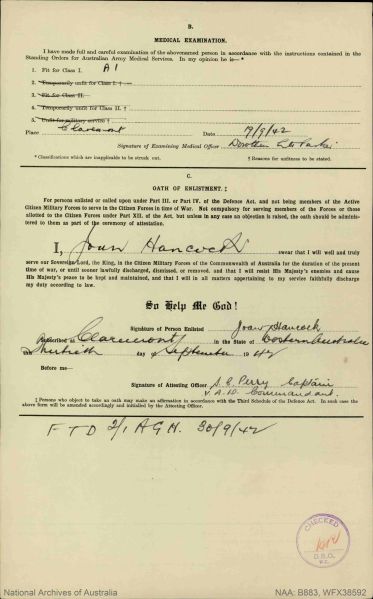 B.
MEDICAL EXAMINATION.
I have made full and careful examination of the abovenamed person in accordance with the instructions contained in the
Standing Orders for Australian Army Medical Services. In my opinion he is—*
1. Fit for Class I. A1
2. Temporarily unfit for Class I. †
3. Fit for Class II.
4. Temporarily unfit for Class II. †
5. Unfit for military service †
Place Claremont Date 19/9/42
Signature of Examining Medical Officer Dorothea Parker
* Classifications which are inapplicable to be struck out. † Reasons for unfitness to be stated.
C.
OATH OF ENLISTMENT. ‡
For persons enlisted or called upon under Part III. or Part IV. of the Defence Act, and not being members of the Active
Citizen Military Forces to serve in the Citizen Forces in time of War. Not compulsory for serving members of the Forces or those
allotted to the Citizen Forces under Part XII. of the Act, but unless in any case an objection is raised, the oath should be adminis-
tered to them as part of the ceremony of attestation.
I, Joan Hancock swear that I will well and truly
serve our Sovereign Lord, the King, in the Citizen Military Forces of the Commonwealth of Australia for the duration of the present
time of war, or until sooner lawfully discharged, dismissed, or removed, and that I will resist His Majesty's enemies and cause
His Majesty's peace to be kept and maintained, and that I will in all matters appertaining to my service faithfully discharge
my duty according to law.
So Help Me God!
Signature of Person Enlisted Joan Hancock
Claremont in the State of Western Australia
this day of September 1942
Before me—
Signature of Attesting Officer S. E. Perry Captain
V.A.D. Commandant.
‡ Persons who object to take an oath may make an affirmation in accordance with the Third Schedule of the Defence Act. In such case the
above form will be amended accordingly and initialled by the Attesting Officer.
F T D 2/1 A G H. 30/9/42
CHECKED
D.R.O.
National Archives of Australia NAA: B883, WFX38592